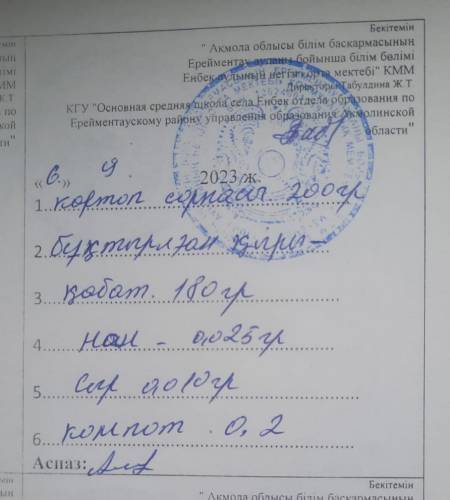 Бекітемін
" Ақмола облысы білім басқармасының
Ерейментау ауданы бойынша білім бөлімі
Еңбек ауылының негізгі орта мектебі" КММ
Директоры Габулдина Ж Т
КГУ "Основная средняя школа села Енбек отдела образования по
Ерейментаускому району управления образования Акмолинской
области"
«6.» 9 2023 ж.
1. картоп сорпасы. 200гр
2. бұқтырылған қыры-
3. қабат. 180гр
4. нан - 0,025гр
5. сыр 0,010гр
6. компот . 0,2
Аспаз:
Бекітемін
" Ақмола облысы білім басқармасының